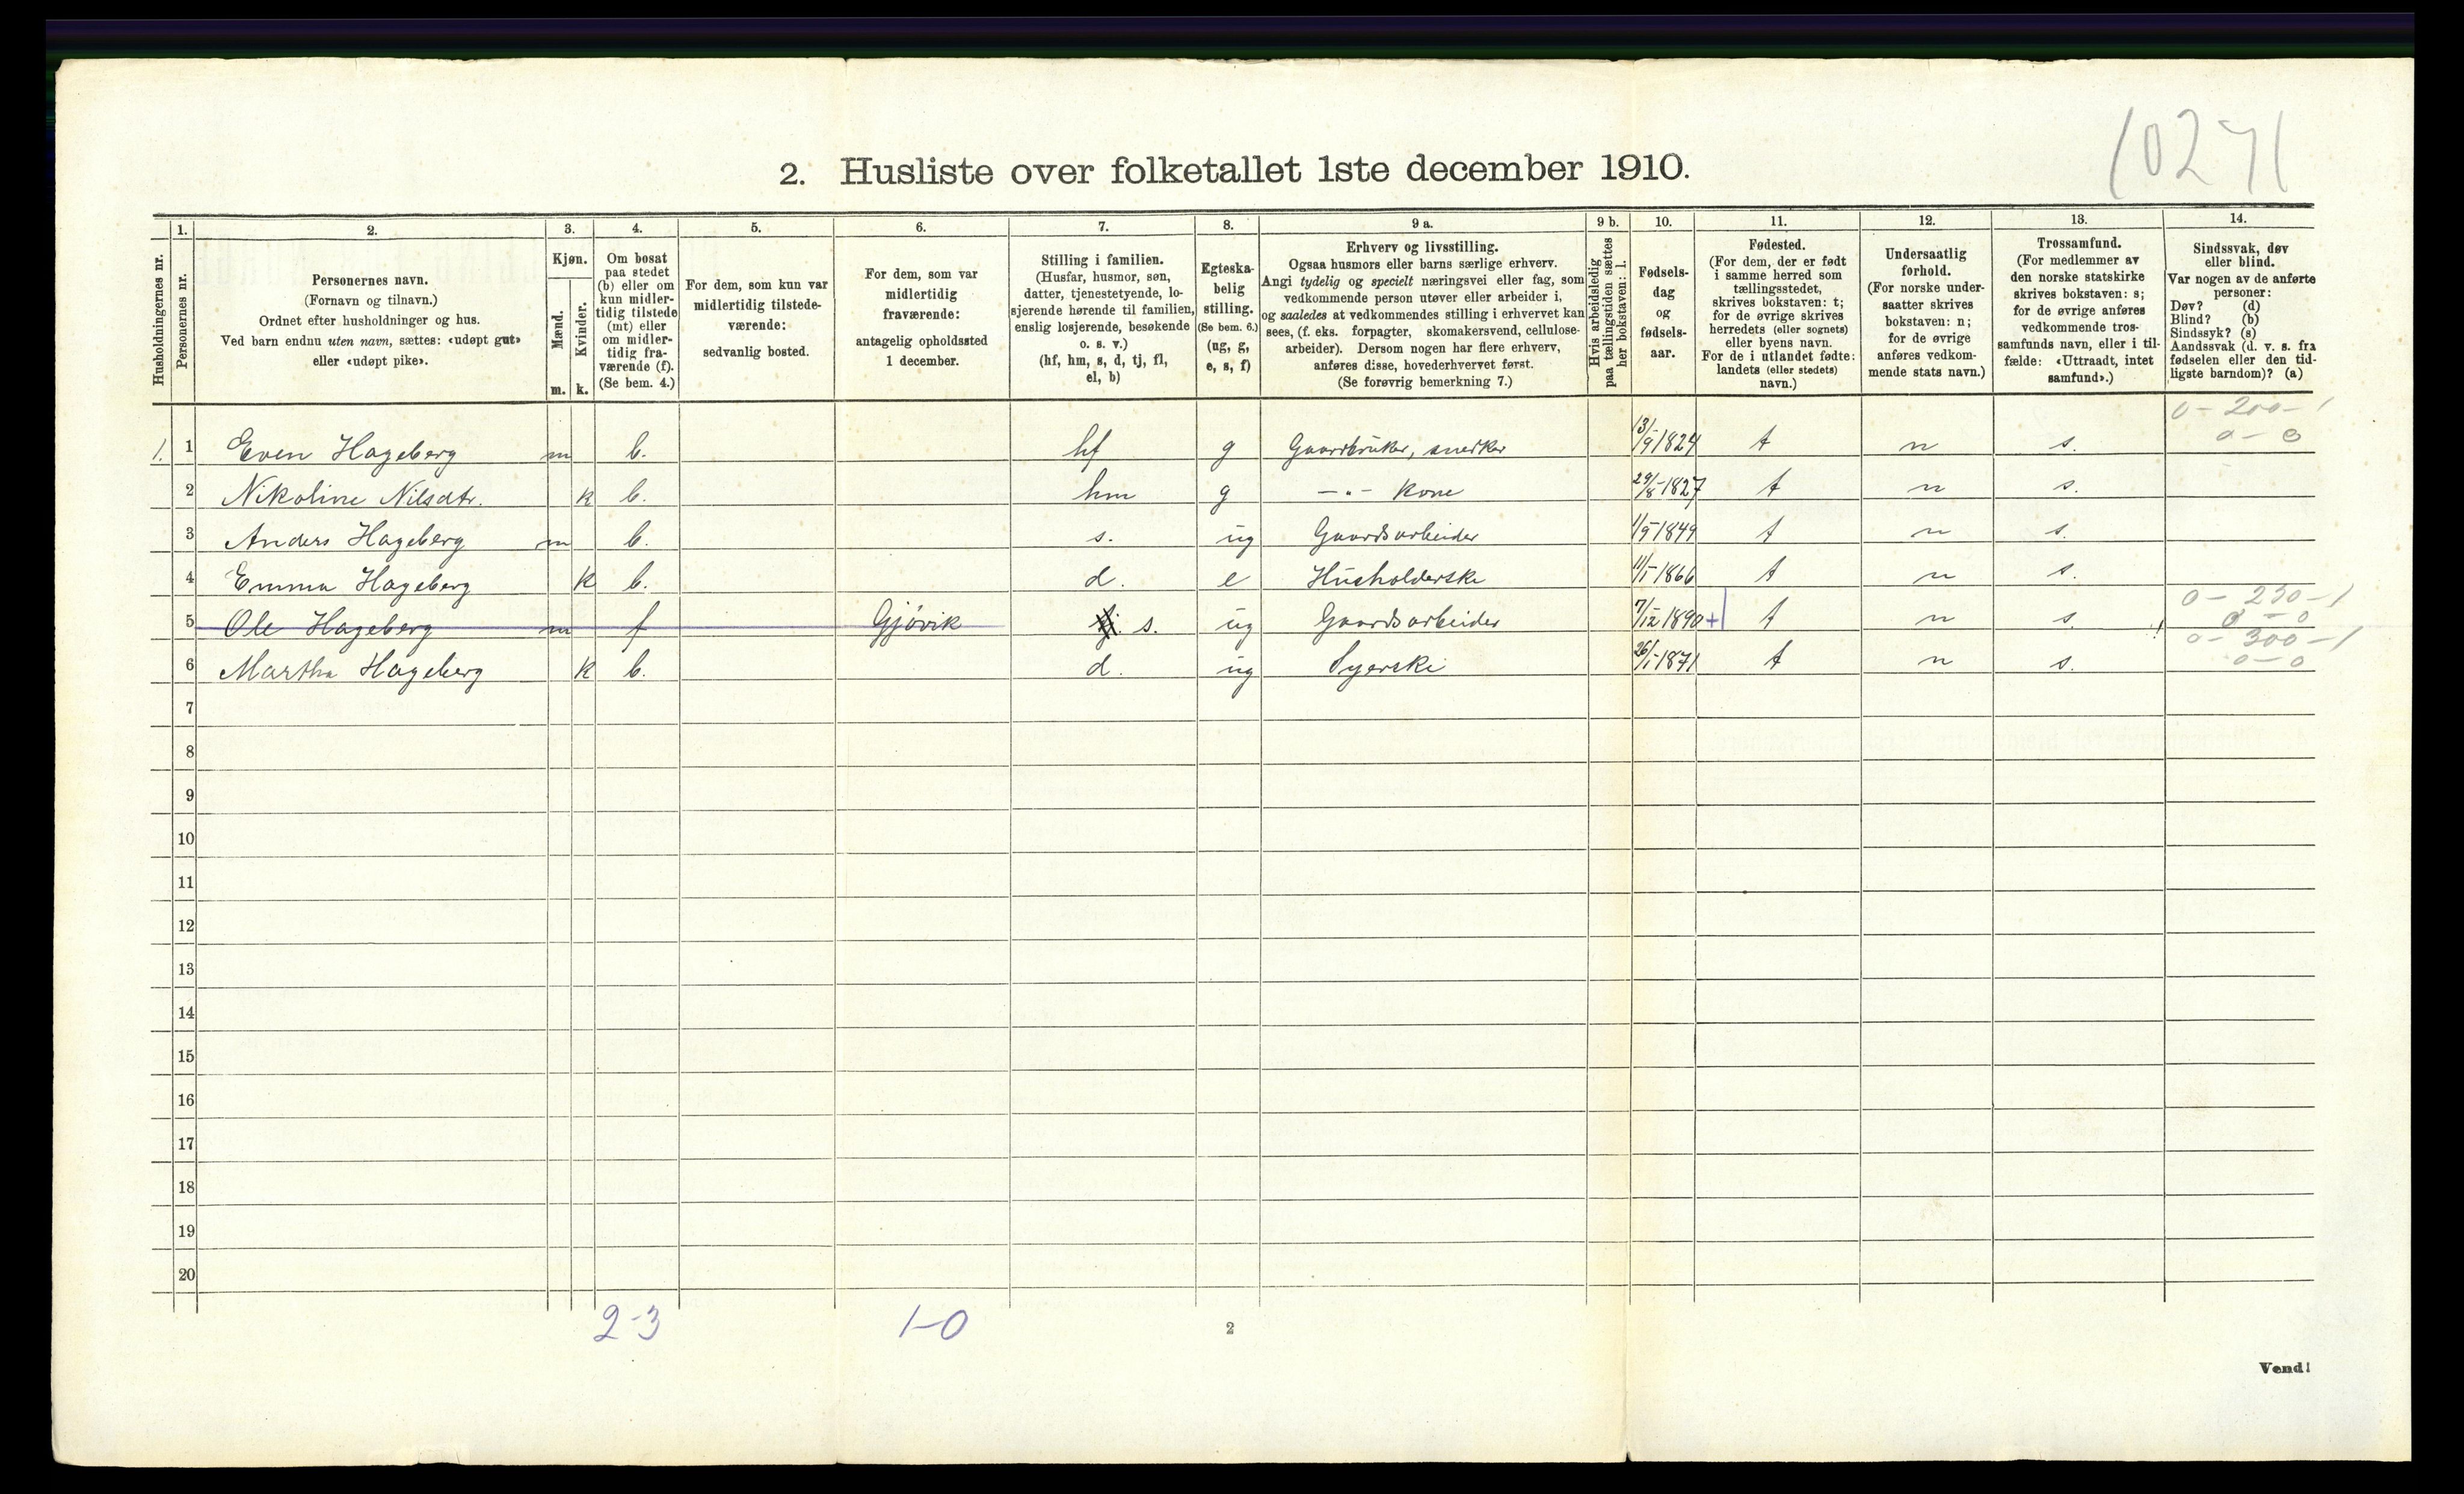 10271
2. Husliste over folketallet 1ste december 1910.
1. 2. 3. 4. 5. 6. 7. 8. 9 a. 9 b. 10. 11. 12. 13. 14.
Husholdningernes nr.
Personernes nr.
Personernes navn.
(Fornavn og tilnavn.)
Ordnet efter husholdninger og hus.
Ved barn endnu uten navn, sættes: «udøpt gut»
eller «udøpt pike».
Kjøn.
Mænd.
Kvinder.
m. k.
Om bosat
paa stedet
(b) eller om
kun midler-
tidig tilstede
(mt) eller
om midler-
tidig fra-
værende (f).
(Se bem. 4.)
For dem, som kun var
midlertidig tilstede-
værende:
sedvanlig bosted.
For dem, som var
midlertidig
fraværende:
antagelig opholdssted
1 december.
Stilling i familien.
(Husfar, husmor, søn,
datter, tjenestetyende, lo-
sjerende hørende til familien,
enslig losjerende, besøkende
o. s. v.)
(hf, hm, s, d, tj, fl,
el, b)
Egteska-
belig
stilling.
(Se bem. 6.)
(ug, g,
e, s, f)
Erhverv og livsstilling.
Ogsaa husmors eller barns særlige erhverv.
Angi tydelig og specielt næringsvei eller fag, som
vedkommende person utøver eller arbeider i,
og saaledes at vedkommendes stilling i erhvervet kan
sees, (f. eks. forpagter, skomakersvend, cellulose-
arbeider). Dersom nogen har flere erhverv,
anføres disse, hovederhvervet først.
(Se forøvrig bemerkning 7.)
Hvis arbeidsledig
paa tællingstiden sættes
her bokstaven: l.
Fødsels-
dag
og
fødsels-
aar.
Fødested.
(For dem, der er født
i samme herred som
tællingsstedet,
skrives bokstaven: t;
for de øvrige skrives
herredets (eller sognets)
eller byens navn.
For de i utlandet fødte:
landets (eller stedets)
navn.)
Undersaatlig
forhold.
(For norske under-
saatter skrives
bokstaven: n;
for de øvrige
anføres vedkom-
mende stats navn.)
Trossamfund.
(For medlemmer av
den norske statskirke
skrives bokstaven: s;
for de øvrige anføres
vedkommende tros-
samfunds navn, eller i til-
fælde: «Uttraadt, intet
samfund».)
Sindssvak, døv
eller blind.
Var nogen av de anførte
personer:
Døv? (d)
Blind? (b)
Sindssyk? (s)
Aandssvak (d. v. s. fra
fødselen eller den tid-
ligste barndom)? (a)
0 - 200 - 1
0 - 0
1. 1 Even Hageberg m b. hf g Gaardbruker, snerker 13/9 1824 t n s.
2 Nikoline Nilsdtr. k b. hm g -"- Kone 29/8-1827 t n s.
3 Anders Hageberg m b. s. ug Gaardsarbeider 1/9 1849 t n s.
4 Emma Hageberg k b. d. e Husholderske 11/1-1866 t n s.
0 - 230 - 1
0 - 0
5 Ole Hageberg m f Gjövik s. ug Gaardsarbeider 7/12 1890 + t n s.
0 - 300 - 1
0 - 0
6 Martha Hageberg k b. d. ug Syerske 26/1-1871 t n s.
7
8
9
10
11
12
13
14
15
16
17
18
19
20
2-3 1-0
2
Vend!